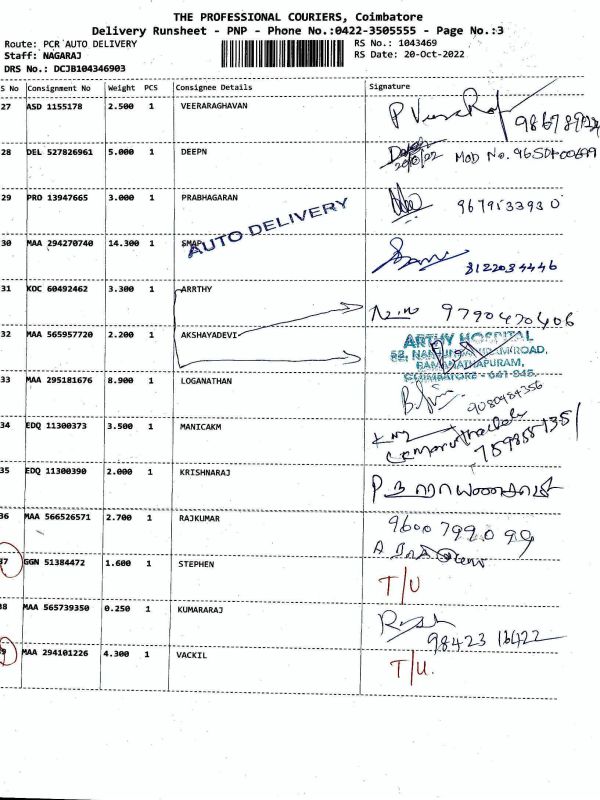 THE PROFESSIONAL COURIERS, Coimbatore
Delivery Runsheet - PNP - Phone No.:0422-3505555 - Page No.:3
Route: PCR AUTO DELIVERY RS No.: 1043469
Staff: NAGARAJ RS Date: 20-Oct-2022
DRS No.: DCJB104346903
S No Consignment No Weight PCS Consignee Details Signature
27 ASD 1155178 2.500 1 VEERARAGHAVAN
28 DEL 527826961 5.000 1 DEEPN
MOD No.
29 PRO 13947665 3.000 1 PRABHAGARAN 9679533930
AUTO DELIVERY
30 MAA 294270740 14.300 1 SMAP
8122034446
31 KOC 60492462 3.300 1 ARRTHY
9790470406
32 MAA 565957720 2.200 1 AKSHAYADEVI
ARTHY HOSPITAL
ROAD,
RAMANATHAPURAM,
COIMBATORE - 641 045.
33 MAA 295181676 8.900 1 LOGANATHAN
9080984356
34 EDQ 11300373 3.500 1 MANICAKM
35 EDQ 11300390 2.000 1 KRISHNARAJ
36 MAA 566526571 2.700 1 RAJKUMAR 9600799099
37 GGN 51384472 1.600 1 STEPHEN T/U
38 MAA 565739350 0.250 1 KUMARARAJ
98423 16422
39 MAA 294101226 4.300 1 VACKIL T/U.